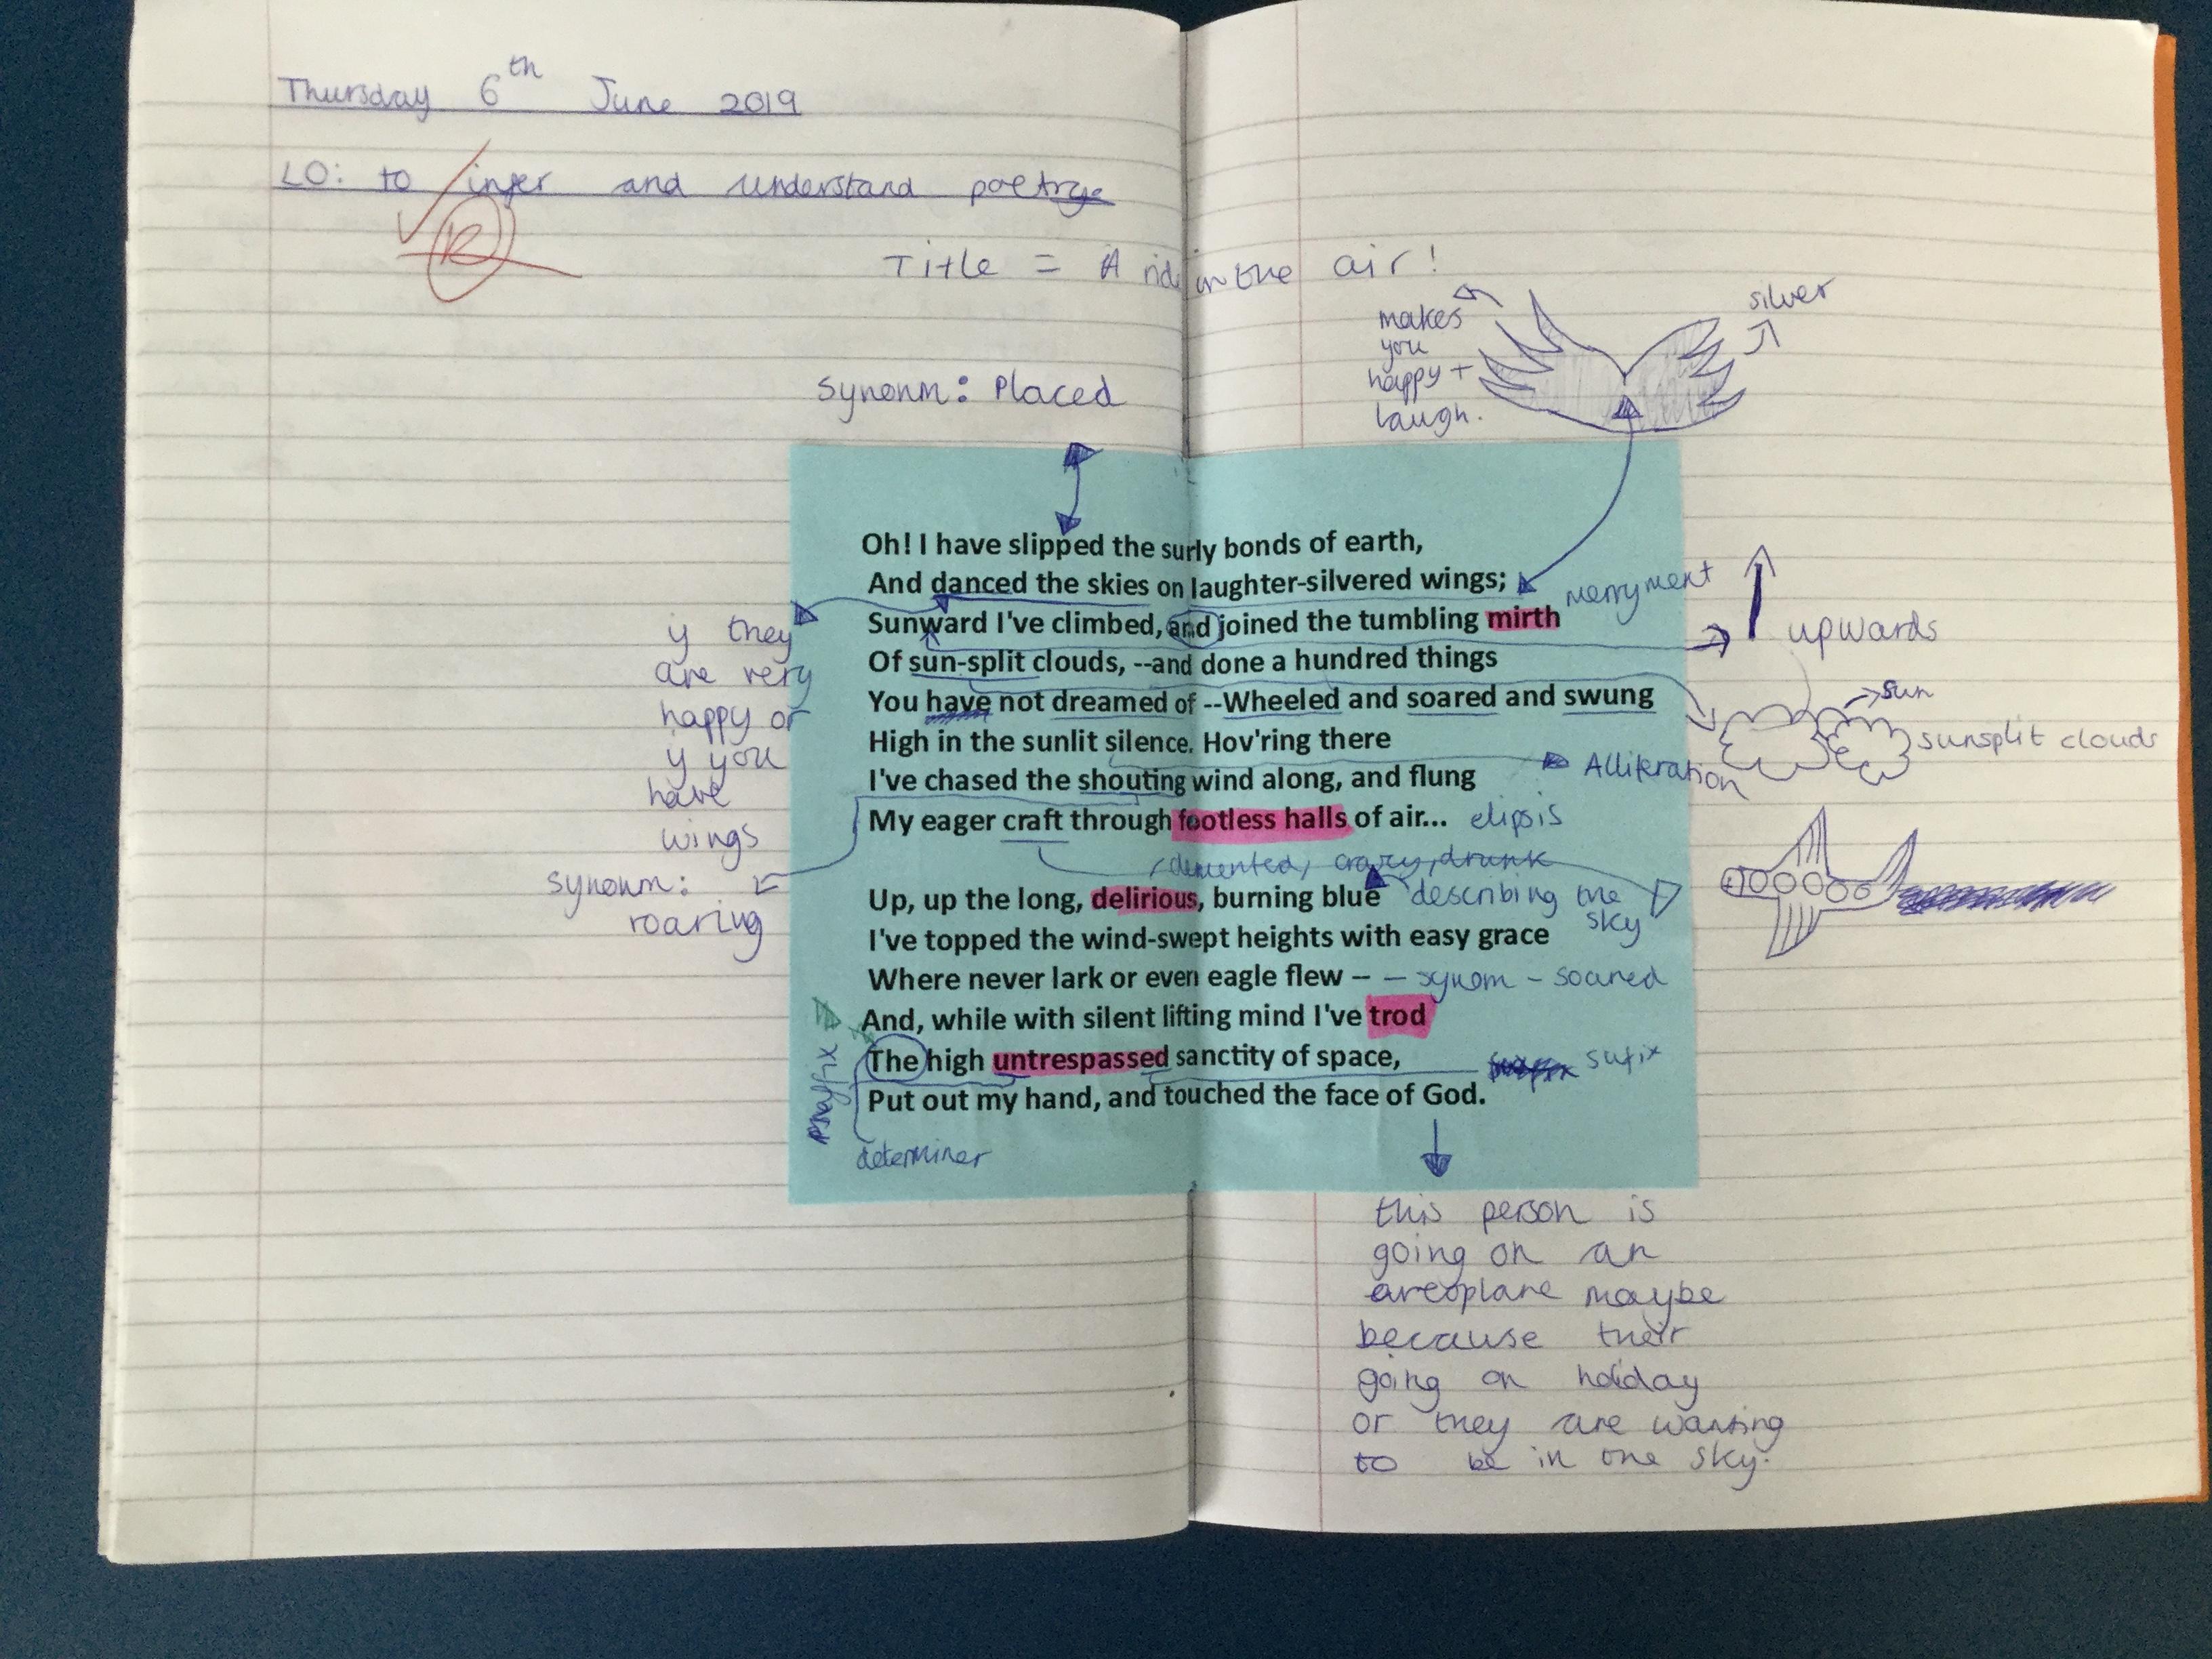 Thursday 6th June 2019
LO: to infer and understand poetry
Title = A ride in the air!
makes
you
happy +
laugh.
silver
Synonm: Placed
Oh! I have slipped the surly bonds of earth,
And danced the skies on laughter-silvered wings;
merryment
Sunward I've climbed, and joined the tumbling mirth
upwards
Of sun-split clouds, --and done a hundred things
You have not dreamed of --Wheeled and soared and swung
sun
sunsplit clouds
High in the sunlit silence. Hov'ring there
Alliteration
I've chased the shouting wind along, and flung
My eager craft through footless halls of air...
elipsis
y they
are very
happy or
y you
have
wings
synonm:
roaring
demented, crazy, drunk
Up, up the long, delirious, burning blue
describing the
sky
I've topped the wind-swept heights with easy grace
Where never lark or even eagle flew –
– synom – soared
And, while with silent lifting mind I've trod
The high untrespassed sanctity of space,
sufix
Put out my hand, and touched the face of God.
determiner
this person is
going on an
areoplane maybe
because their
going on holiday
or they are wanting
to be in the sky.